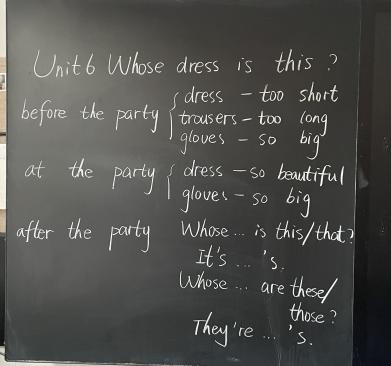 Unit 6 Whose dress is this?
before the party { dress - too short
trousers - too long
gloves - so big
at the party { dress - so beautiful
gloves - so big
after the party Whose ... is this/that?
It's ... 's.
Whose ... are these/
those?
They're ... 's.